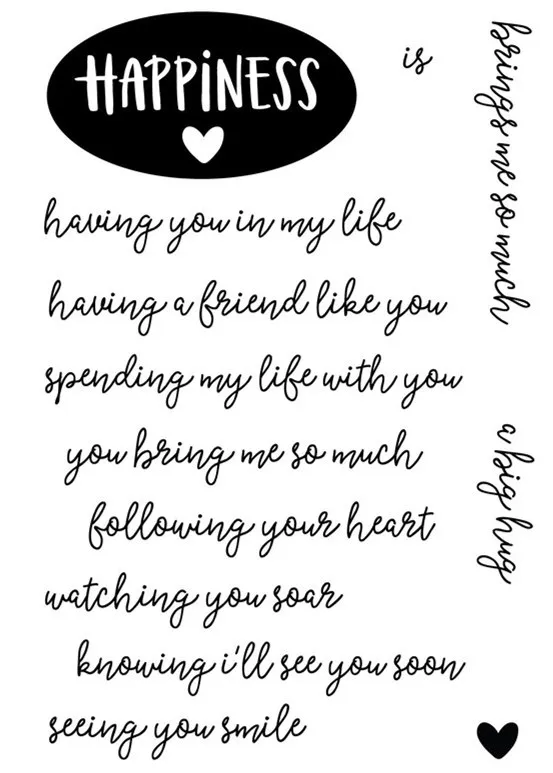 HAPPiNESS
is
having you in my life
having a friend like you
spending my life with you
you bring me so much
following your heart
watching you soar
knowing i'll see you soon
seeing you smile
brings me so much
a big hug